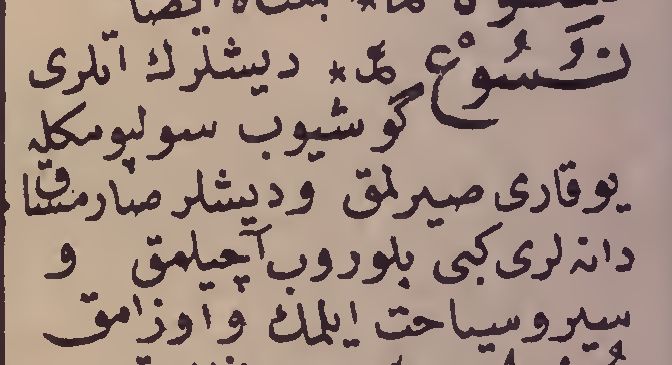 نُسُوْعْ مـ * ديشلرك اتلرى
گوشيوب سولپومكله
يوقارى صيرلمق وديشلر صارمساق
دانه لرى كبى بلوروب آچيلمق و
سير وسياحت ايلمك و اوزامق